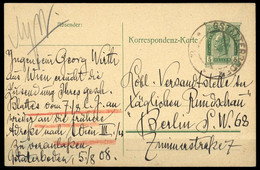 Absender:
Korrespondenz-Karte
Ingenieur Georg Wirth
aus Wien ersucht die
Zusendung Ihres gesch.
Blattes vom 7/8 l. J. an
wieder an die frühere
Adresse nach Wien III/4
zu veranlassen
5/8 08.
Löbl. Versandtstelle der
Täglichen Rundschau
Berlin S.W. 68
Zimmerstraße 7